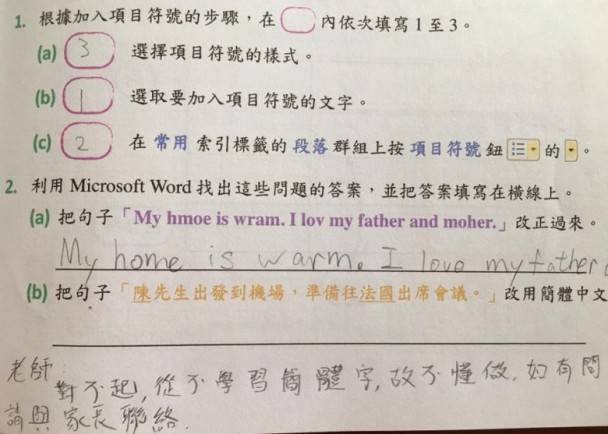 1. 根據加入項目符號的步驟，在 內依次填寫 1 至 3。
(a) 3 選擇項目符號的樣式。
(b) 1 選取要加入項目符號的文字。
(c) 2 在 常用 索引標籤的 段落 群組上按 項目符號 鈕 的 。
2. 利用 Microsoft Word 找出這些問題的答案，並把答案填寫在橫線上。
(a) 把句子「My hmoe is wram. I lov my father and moher.」改正過來。
My home is warm. I love my father
(b) 把句子「陳先生出發到機場，準備往法國出席會議。」改用簡體中文
老師
對不起，從不學習簡體字，故不懂做，如有問
請與家長聯絡.